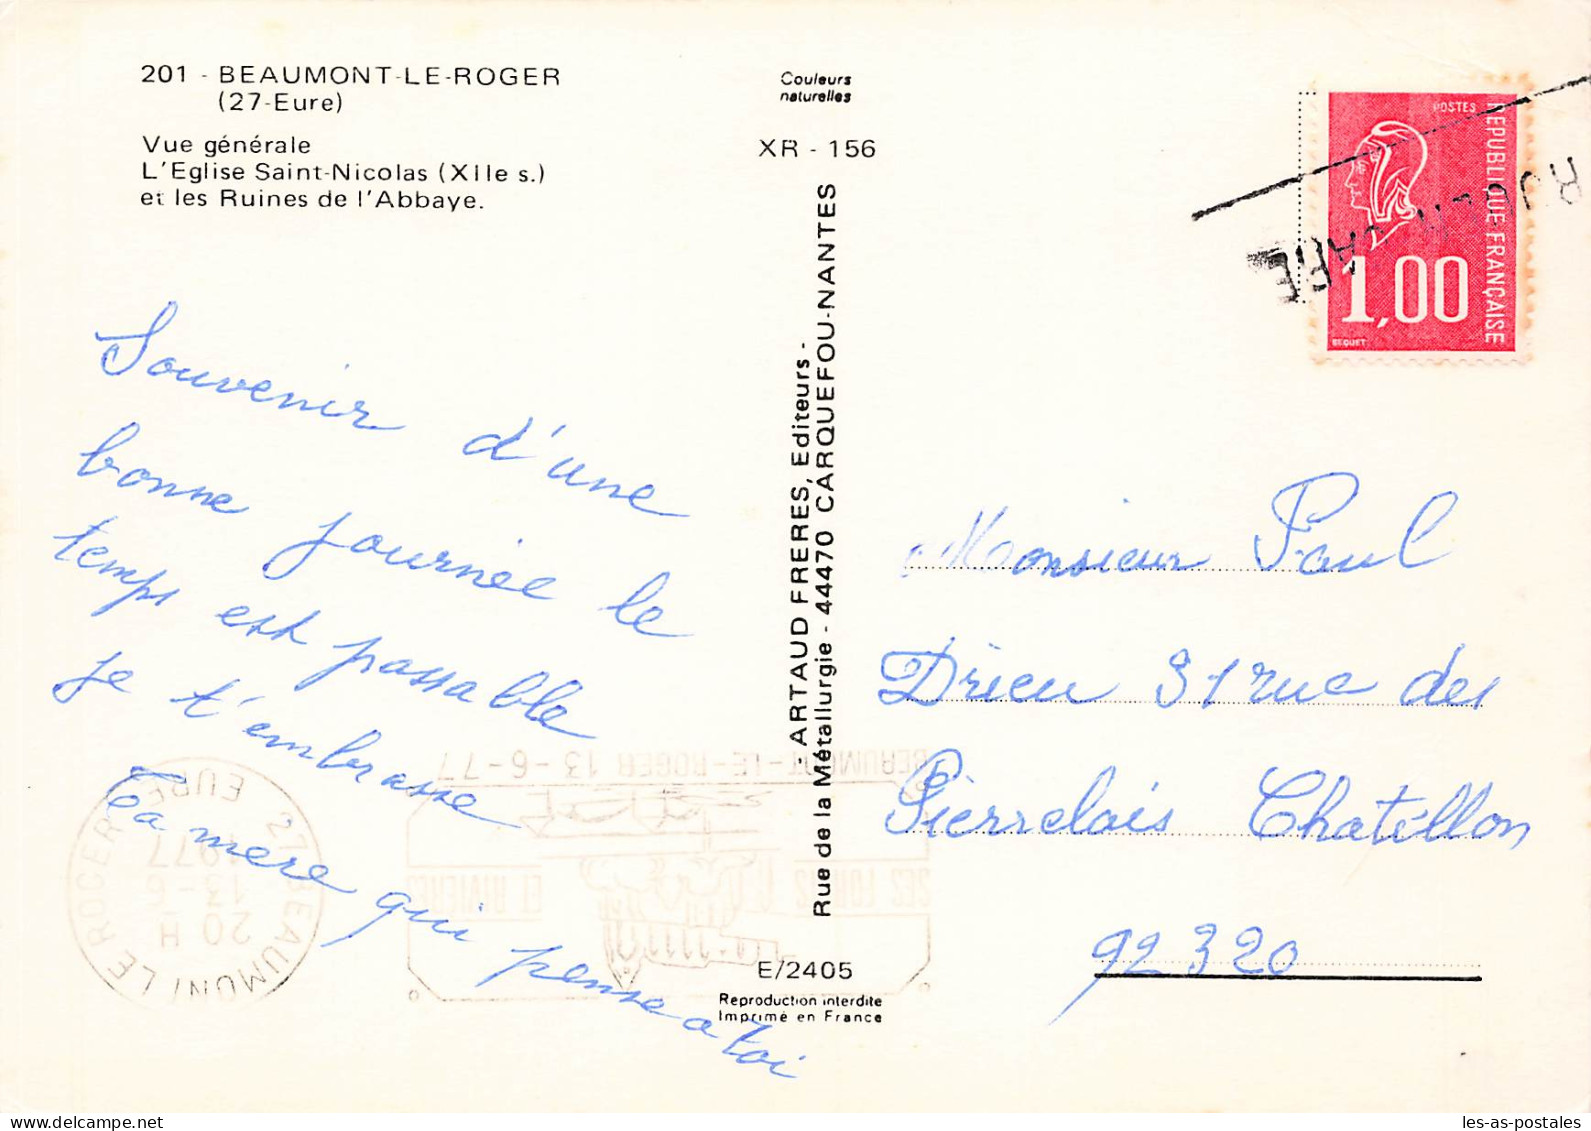 201 - BEAUMONT-LE-ROGER
(27-Eure)
Vue générale
L'Eglise Saint-Nicolas (XIIe s.)
et les Ruines de l'Abbaye.
Souvenir d'une
bonne journée le
temps est passable
je t'embrasse
Ta mère qui pense a toi
Couleurs
naturelles
XR - 156
- ARTAUD FRERES, Editeurs -
Rue de la Métallurgie - 44470 CARQUEFOU-NANTES
E/2405
Reproduction interdite
Imprimé en France
POSTES
REPUBLIQUE FRANÇAISE
1,00
BEQUET
Monsieur Paul
Drieu 31 rue des
Pierrelais Chatéllon
92320
BEAUMONT-LE-ROGER 13-6-77
SES FORETS ET RIVIERES
27 BEAUMONT LE ROGER
EURE
20 H
13-6
1977
les-as-postales